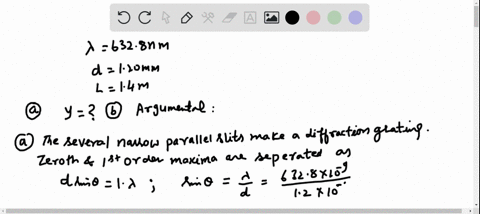 λ = 632.8nm
d = 1.20mm
L = 1.4m
ⓐ y = ? ⓑ Argumental :
ⓐ The several narrow parallel slits make a diffraction grating.
Zeroth & 1st order maxima are seperated as
d sinθ = 1·λ ; sinθ = λ/d = 632.8×10⁻⁹/1.2×10⁻